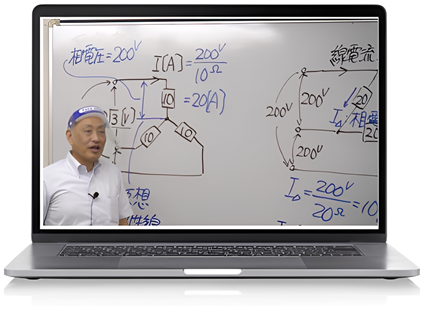 相電圧=200V
I[A]=200V/10Ω
=20[A]
10
10
10
3[V]
想
線電流
200V
200V
200V
20
I△ 相電
20
I△=200V/20Ω=10